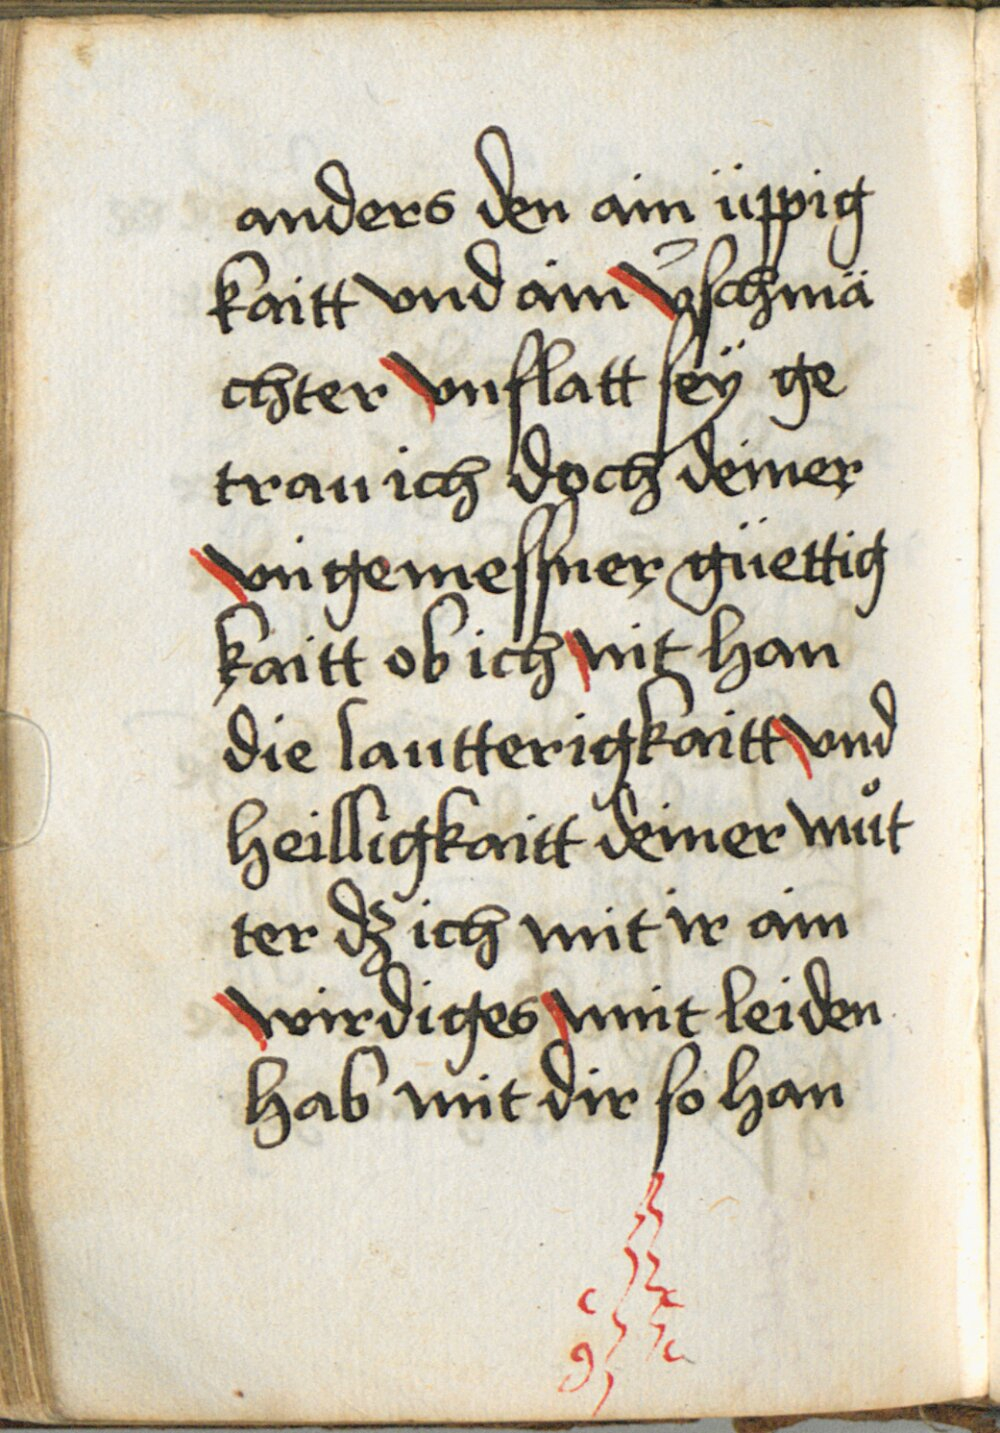 anders den ain üppig
kaitt vnd ain v̾schmä
chter vnflatt seÿ ge
trau ich doch deiner
vngemessner güettig
kaitt ob ich nit han
die lautterigkaitt vnd
heilligkaitt deiner muͦt
ter dz ich mit ir ain
wirdiges mit leiden
hab mit dir so han